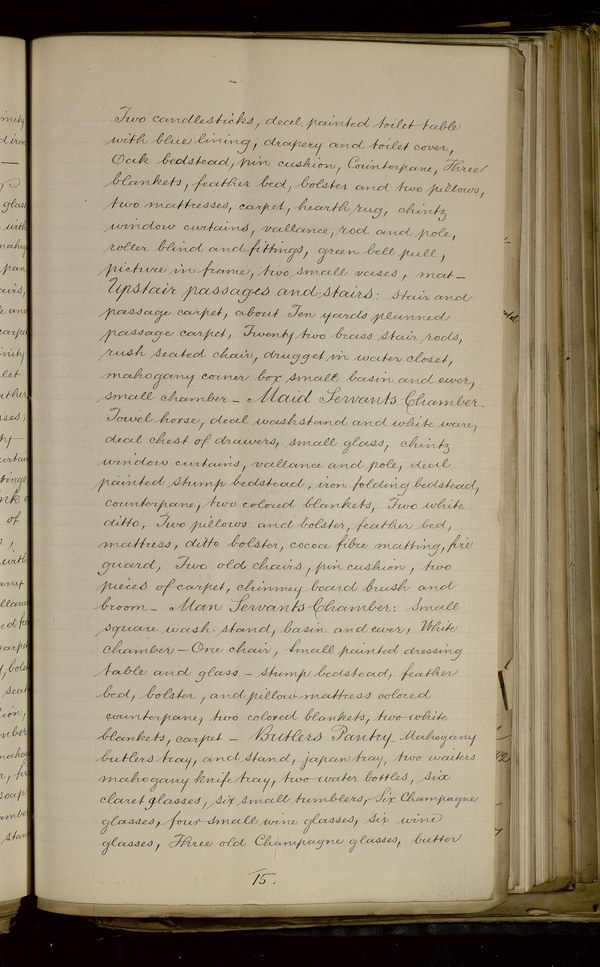 Two candlesticks, deal painted toilet table
with blue lining, drapery and toilet cover,
Oak bedstead, pin cushion, Counterpane, Three
blankets, feather bed, bolster and two pillows,
two mattresses, carpet, hearth rug, chintz
window curtains, vallance, rod and pole,
roller blind and fittings, green bell pull,
picture in frame, two small vases, mat –
Upstair passages and stairs: stair and
passage carpet, about Ten yards planned
passage carpet, Twenty two brass stair rods,
rush seated chair, drugget in water closet,
mahogany corner box small basin and ewer,
small chamber – Maid Servants Chamber.
Towel horse, deal washstand and white ware,
deal chest of drawers, small glass, chintz
window curtains, vallance and pole, deal
painted stump bedstead, iron folding bedstead,
counterpane, two colored blankets, Two white
ditto, Two pillows and bolster, feather bed,
mattress, ditto bolster, cocoa fibre matting, fire
guard, Two old chairs, pin cushion, two
pieces of carpet, chimney board brush and
broom – Man Servants Chamber: Small
square wash-stand, basin and ewer, White
chamber – One chair, Small painted dressing
table and glass – stump bedstead, feather
bed, bolster, and pillow mattress colored
counterpane, two colored blankets, two white
blankets, carpet – Butlers Pantry Mahogany
butlers tray, and stand, japan tray, two waiters
mahogany knife tray, two water bottles, six
claret glasses, six small tumblers, Six Champagne
glasses, four small wine glasses, six wine
glasses, Three old Champagne glasses, butter
15.